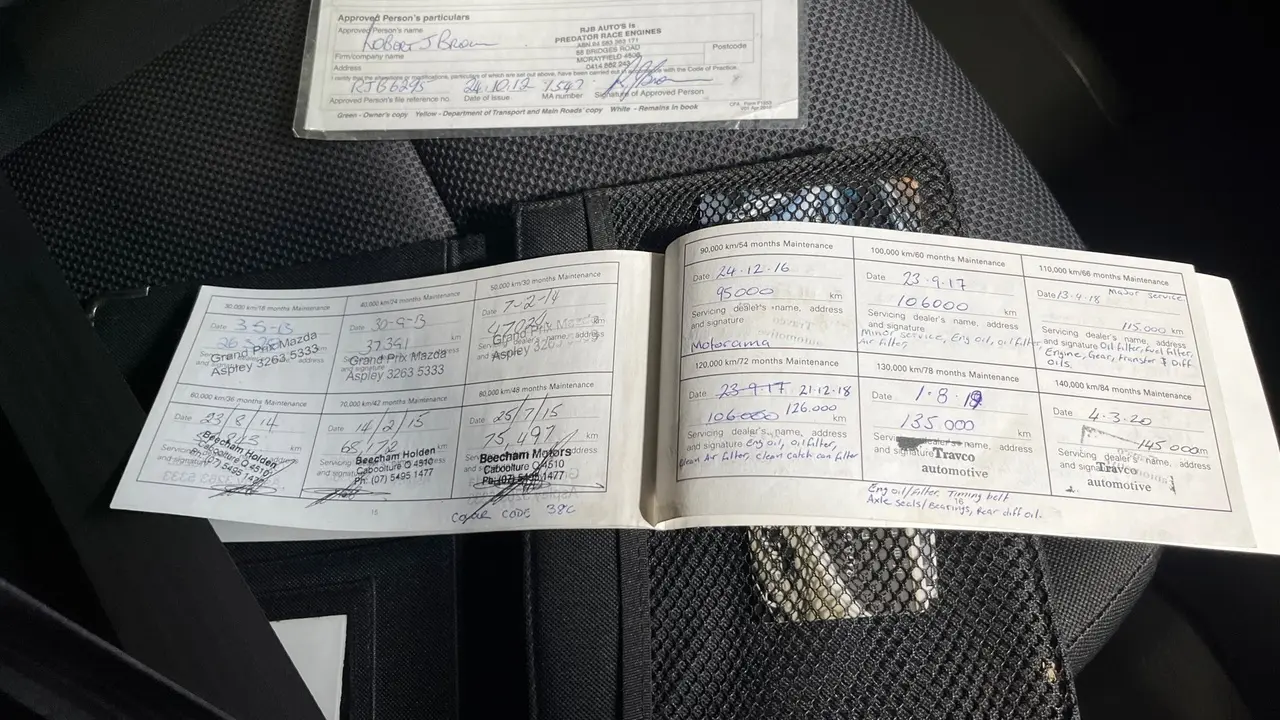 Approved Person's particulars
Approved Person's name
Robert J Brown
Firm/company name
Address
RJB AUTO'S is
PREDATOR RACE ENGINES
ABN 84 583 363 171
88 BRIDGES ROAD
MORAYFIELD 4506
0414 882 943
Postcode
I certify that the alterations or modifications, particulars of which are set out above, have been carried out in accordance with the Code of Practice.
RJB6295 24.10.12 1547
Approved Person's file reference no. Date of Issue MA number Signature of Approved Person
Green - Owner's copy Yellow - Department of Transport and Main Roads' copy White - Remains in book
30,000 km/18 months Maintenance
Date 3-5-13
Grand Prix Mazda
Aspley 3263 5333
40,000 km/24 months Maintenance
Date 30-9-13
37391 km
Grand Prix Mazda
Aspley 3263 5333
50,000 km/30 months Maintenance
Date 7-2-14
km
Grand Prix Mazda
Aspley
60,000 km/36 months Maintenance
Date 23/8/14
Beecham Holden
Caboolture Q 4510
70,000 km/42 months Maintenance
Date 14/2/15
km
Beecham Holden
Caboolture Q 4510
Ph: (07) 5495 1477
80,000 km/48 months Maintenance
Date 25/7/15
75,497 km
Beecham Motors
Caboolture Q 4510
Ph: (07) 5495 1477
15
COLOUR CODE 38C
90,000 km/54 months Maintenance
Date 24.12.16
95000 km
Servicing dealer's name, address
and signature
Motorama
100,000 km/60 months Maintenance
Date 23.9.17
106000 km
Servicing dealer's name, address
and signature
Minor service, Eng oil, oil filter,
Air filter,
110,000 km/66 months Maintenance
Date 13.9.18 Major service
115.000 km
Servicing dealer's name, address
and signature Oil filter, fuel filter,
Engine, Gear, transfer & Diff
oils.
120,000 km/72 months Maintenance
Date 23.9.17 21.12.18
106000 126.000 km
Servicing dealer's name, address
and signature Eng oil, oil filter,
Clean Air filter, clean catch can filter
130,000 km/78 months Maintenance
Date 1.8.19
135.000 km
dealer's name, address
and signature
Travco
automotive
140,000 km/84 months Maintenance
Date 4.3.20
145000 km
Servicing dealer's name, address
and signature
Travco
automotive
16
Eng oil/filter, Timing belt
Axle seals/Bearings, Rear diff oil.